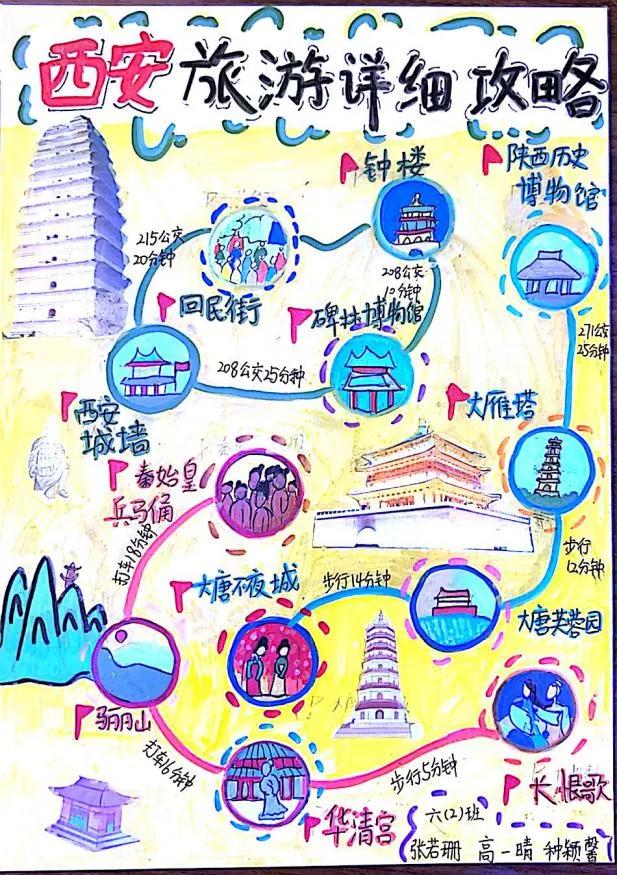 西安旅游详细攻略
钟楼
陕西历史
博物馆
215公交
20分钟
208公交
10分钟
回民街
碑林博物馆
271公交
25分钟
208公交25分钟
西安
城墙
大雁塔
秦始皇
兵马俑
打车18分钟
大唐不夜城
步行14分钟
步行
12分钟
大唐芙蓉园
骊山
打车6分钟
步行5分钟
华清宫
长恨歌
六(2)班
张若珊 高一晴 种颖馨